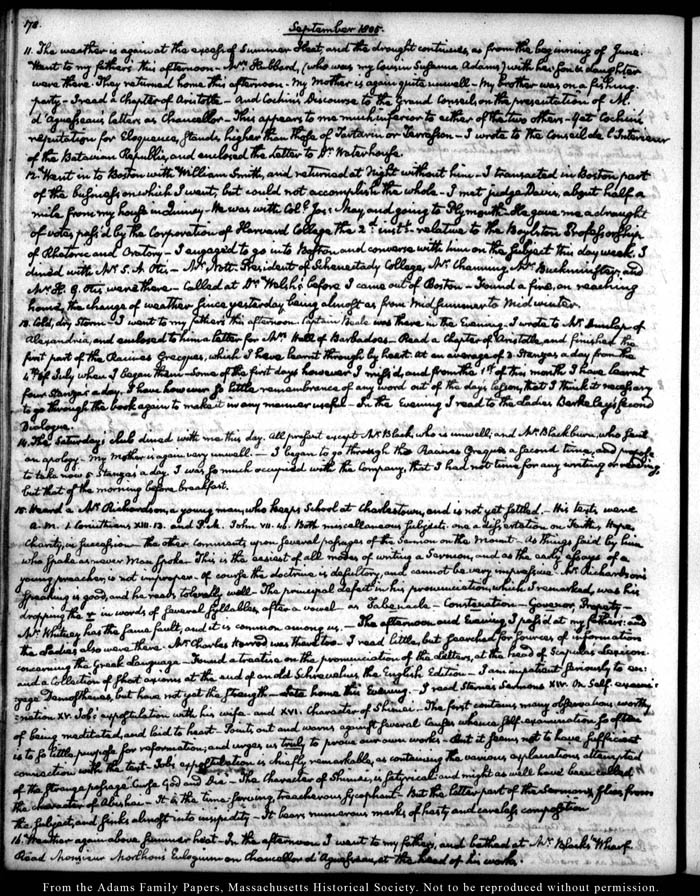 178.
September 1805.
11. The weather is again at the excess of Summer Heat, and the drought continues, as from the beginning of June.
Went to my father's this afternoon — Mrs. Hubbard, (who was my Cousin Susanna Adams) with her son & daughter
were there. They returned home this afternoon. My Mother is again quite unwell — My brother was on a fishing
party — I read a Chapter of Aristotle — And Cochin's Discourse to the Grand Conseil, on the presentation of M.
d'Aguesseau's letters as Chancellor — This appears to me much inferior to either of the two others — Yet Cochin's
reputation for Eloquence, stands higher than those of Tartarin or Terrasson — I wrote to the Conseil de l'Interieur
of the Batavian Republic, and enclosed the letter to Dr. Waterhouse.
12. Went in to Boston with William Smith, and returned at Night without him — I transacted in Boston part
of the business on which I went, but could not accomplish the whole — I met judge Davis, about half a
mile from my house in Quincy — He was with Coll. Jos: May, and going to Plymouth. He gave me a draught
of votes, pass'd by the Corporation of Harvard College the 2d. inst. relative to the Boylston Professorship
of Rhetoric and Oratory — I engaged to go into Boston and converse with him on the subject this day week. I
dined with Mr. S. A. Otis — Mr. Nott, President of Schenectady College, Mr. Channing, Mr. Buckminster, and
Mr. H. G. Otis, were there — Called at Dr. Welsh's before I came out of Boston — Found a fire, on reaching
home, the change of weather since yesterday being almost as from Midsummer to Midwinter.
13. Cold, dry Storm — I went to my father's this afternoon. Captain Beale was there in the Evening. I wrote to Mr. Dunlap of
Alexandria, and enclosed to him a letter for Mrs. Hull of Barbadoes — Read a Chapter of Aristotle, and finished the
first part of the Racines Grecques, which I have learnt through by heart at an average of 2 Stanzas a day from the
4th. of July, when I began them — Some of the first days however I miss'd, and from the 1st. of this month I have learnt
four Stanzas a day. I have however so little remembrance of any word out of the day's lesson, that I think it necessary
to go through the book again to make it in any manner useful — In the Evening I read to the Ladies Berkeley's second
Dialogue.
14. The Saturday's club dined with me this day. All present except Mr. Black, who is unwell; and Mr. Blackburn, who sent
an apology. My Mother is again very unwell. — I began to go through the Racines Grecques a second time, and propose
to take now 5 Stanzas a day. I was so much occupied with the Company, that I had not time for any writing or reading,
but that of the morning before breakfast.
15. Heard a Mr. Richardson, a young man, who keeps School at Charlestown, and is not yet settled. — His texts were
A.M. 1. Corinthians XIII. 13. and P.M. John VII. 46. Both miscellaneous subjects: one a dissertation on Faith, Hope,
Charity, in succession — the other Comments upon several passages of the Sermon on the Mount — As things said by him
who spake as never Man spoke. This is the easiest of all modes of writing a Sermon, and as the early essays of a
young preacher, is not improper. Of course the doctrine is desultory, and cannot be very impressive. Mr. Richardson's
speaking is good, and he reads tolerably well — The principal defect in his pronunciation, which I remarked, was his
dropping the r in words of several syllables, after a vowel — as Tabenacle — Consternation — Govenor, Propety —
Mr. Whitney has the same fault, and it is common among us. — The afternoon and Evening I pass'd at my father's: and
the Ladies also were there. Mr. Charles Norwood was there too — I read little, but searched for sources of information
concerning the Greek Language — Found a treatise on the pronunciation of the letters, at the head of Scapula's Lexicon.
and a Collection of short axioms at the end of an old Schrevelius, the English Edition — I am impatient seriously to en:
gage Demosthenes, but have not yet the strength — Late home this Evening. — I read Sterne's Sermons XIV. On Self-exami:
nation XV. Job's expostulation with his wife — and XVI. Character of Shimei. The first contains many observations worthy
of being meditated, and laid to heart — Points out and warns against several causes whence self-examination so often
is to so little purpose for reformation; and urges us truly to prove our own works — But it seems not to have sufficient
connection with the text — Job's expostulation is chiefly remarkable, as containing the various explanations attempted
of the strange passage "Curse God and Die" — The Character of Shimei, is satyrical: and might as well have been called
the character of Abishai — It is the time serving, treacherous sycophant — But the latter part of the Sermon, flies from
the subject, and sinks almost into insipidity — It bears numerous marks of hasty and careless composition.
16. Weather again above summer heat — In the afternoon I went to my father's, and bathed at Mr. Black's Wharf.
Read Monsieur Morlhon's Eulogium on Chancellor d'Aguesseau, at the head of his works.
From the Adams Family Papers, Massachusetts Historical Society. Not to be reproduced without permission.